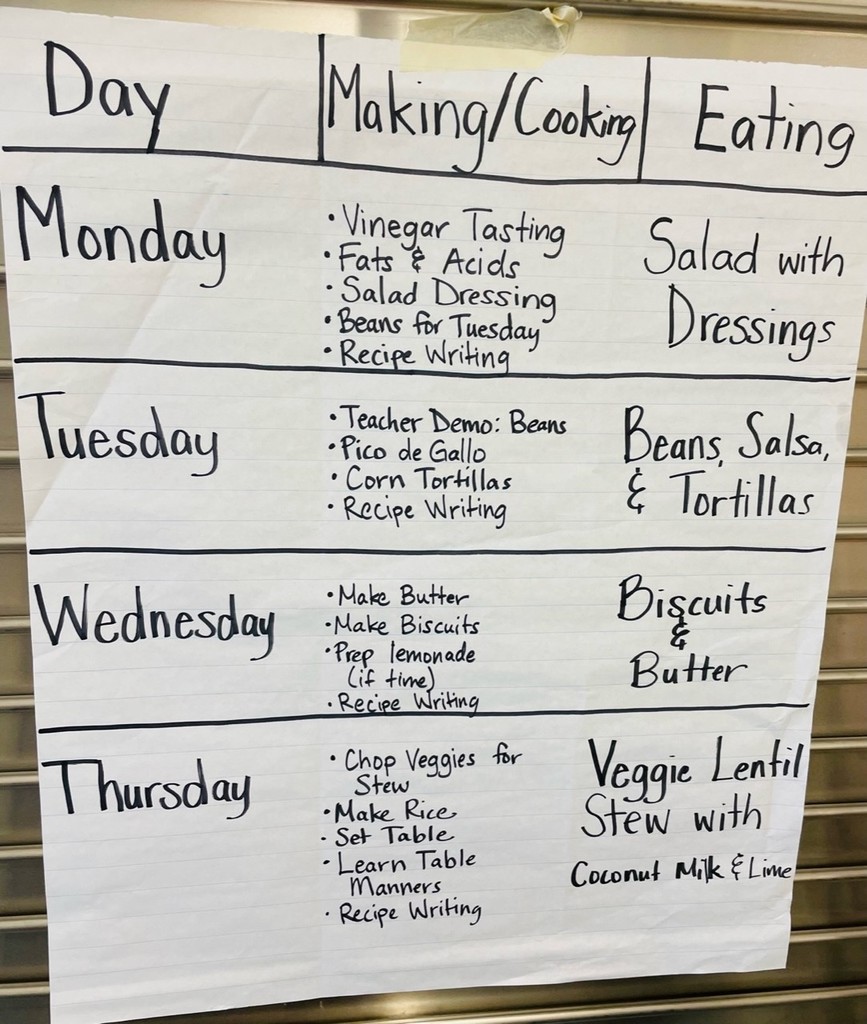 Day Making/Cooking Eating
Monday
• Vinegar Tasting
• Fats & Acids
• Salad Dressing
• Beans for Tuesday
• Recipe Writing
Salad with
Dressings
Tuesday
• Teacher Demo: Beans
• Pico de Gallo
• Corn Tortillas
• Recipe Writing
Beans, Salsa,
& Tortillas
Wednesday
• Make Butter
• Make Biscuits
• Prep lemonade
(if time)
• Recipe Writing
Biscuits
&
Butter
Thursday
• Chop Veggies for
Stew
• Make Rice
• Set Table
• Learn Table
Manners
• Recipe Writing
Veggie Lentil
Stew with
Coconut Milk & Lime